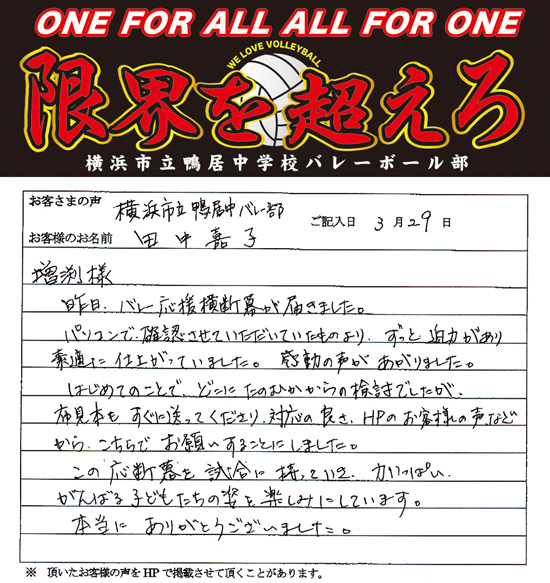 ONE FOR ALL ALL FOR ONE
WE LOVE VOLLEYBALL
限界を超えろ
横浜市立鴨居中学校バレーボール部
お客さまの声 横浜市立鴨居中バレー部
ご記入日 3月29日
お客様のお名前 田中嘉子
増渕様
昨日、バレー応援横断幕が届きました。
パソコンで確認させていただいていたものより、ずっと迫力があり
素適に仕上がっていました。感動の声があがりました。
はじめてのことで、どこにたのむかからの検討でしたが、
布見本もすぐに送ってくださり、対応の良さ、HPのお客様の声など
から、こちらでお願いすることにしました。
この応断幕を試合に持っていき、力いっぱい
がんばる子どもたちの姿を楽しみにしています。
本当にありがとうございました。
※ 頂いたお客様の声をHPで掲載させて頂くことがあります。